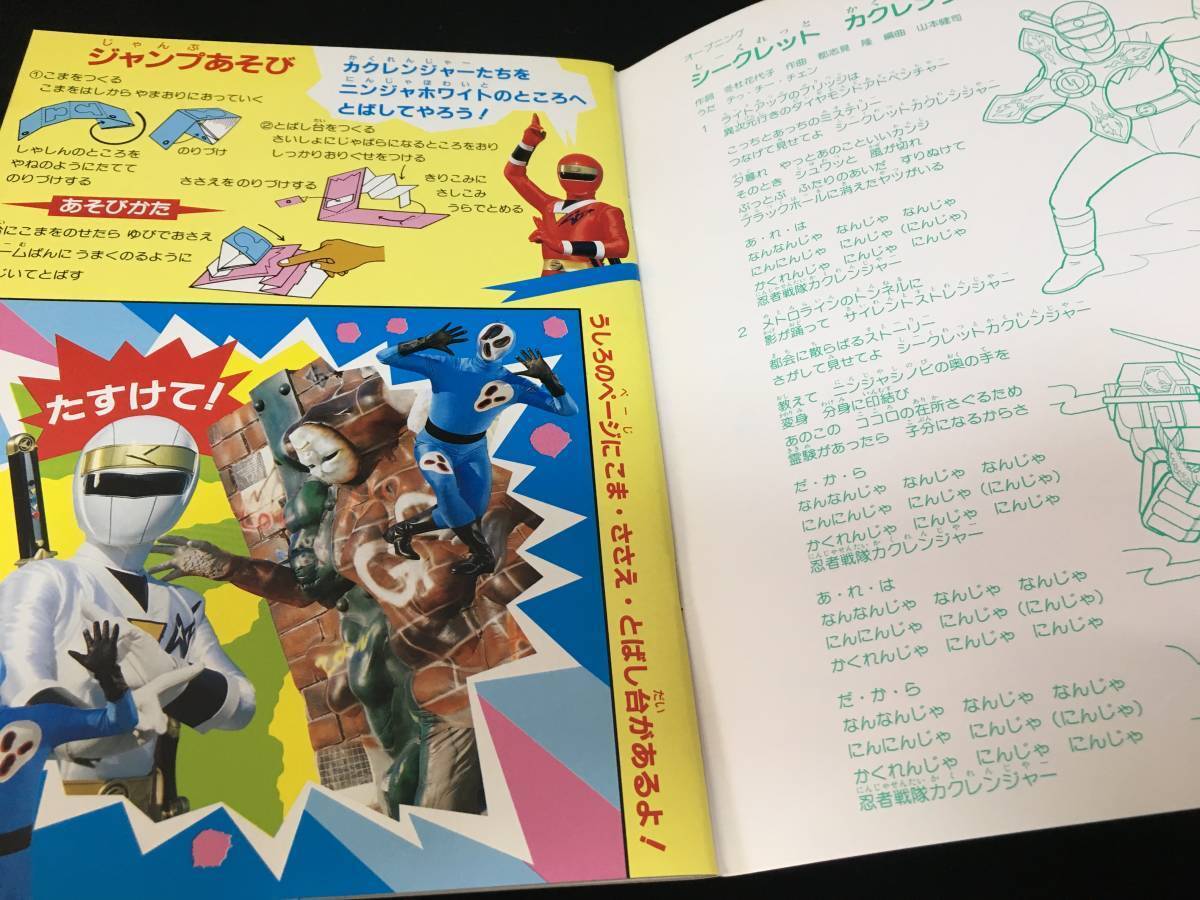 じゃんぷ
ジャンプあそび
①こまをつくる
こまをはしから やまおりにおっていく
しゃしんのところを
やねのようにたてて
のりづけする
のりづけ
かくれんじゃー
カクレンジャーたちを
にんじゃほわいと
ニンジャホワイトのところへ
とばしてやろう！
②とばし台をつくる
だい
さいしょにじゃばらになるところをおり
しっかりおりぐせをつける
ささえをのりづけする
きりこみに
さしこみ
うらでとめる
あそびかた
にこまをのせたら ゆびでおさえ
ームばんに うまくのるように
じいてとばす
たすけて！
うしろのページにこま・ささえ・とばし台があるよ！
ぺーじ
だい
オープニング
しーくれっと かく
シークレット カクレンジ
作詞 冬杜花代子 作曲 都志見 隆 編曲 山本健司
うた トゥ・チー・チェン
1 ライトアップのブリッジは
異次元行きのダイヤモンドアドベンチャー
こっちとあっちのミステリー
つなげて見せてよ シークレットカクレンジャー
やっとあのこといいカンジ
夕暮れ シュウッと 風が切れ
そのとき ふたりのあいだ すりぬけて
ぶっとぶ
ブラックホールに消えたヤツがいる
あ・れ・は
なんなんじゃ なんじゃ なんじゃ
にんにんじゃ にんじゃ（にんじゃ）
かくれんじゃ にんじゃ にんじゃ
にんじゃせんたいかくれんじゃー
忍者戦隊カクレンジャー
2 メトロラインのトンネルに
影が踊って サイレントストレンジャー
都会に散らばるストーリー
さがして見せてよ シークレットカクレンジャー
教えて ニンジャシノビの奥の手を
変身 分身に印結び
あのこの ココロの在所さぐるため
霊験があったら 子分になるからさ
だ・か・ら
なんなんじゃ なんじゃ なんじゃ
にんにんじゃ にんじゃ（にんじゃ）
かくれんじゃ にんじゃ にんじゃ
にんじゃせんたいかくれんじゃー
忍者戦隊カクレンジャー
あ・れ・は
なんなんじゃ なんじゃ なんじゃ
にんにんじゃ にんじゃ（にんじゃ）
かくれんじゃ にんじゃ にんじゃ
だ・か・ら
なんなんじゃ なんじゃ なんじゃ
にんにんじゃ にんじゃ（にんじゃ）
かくれんじゃ にんじゃ にんじゃ
にんじゃせんたいかくれんじゃー
忍者戦隊カクレンジャー